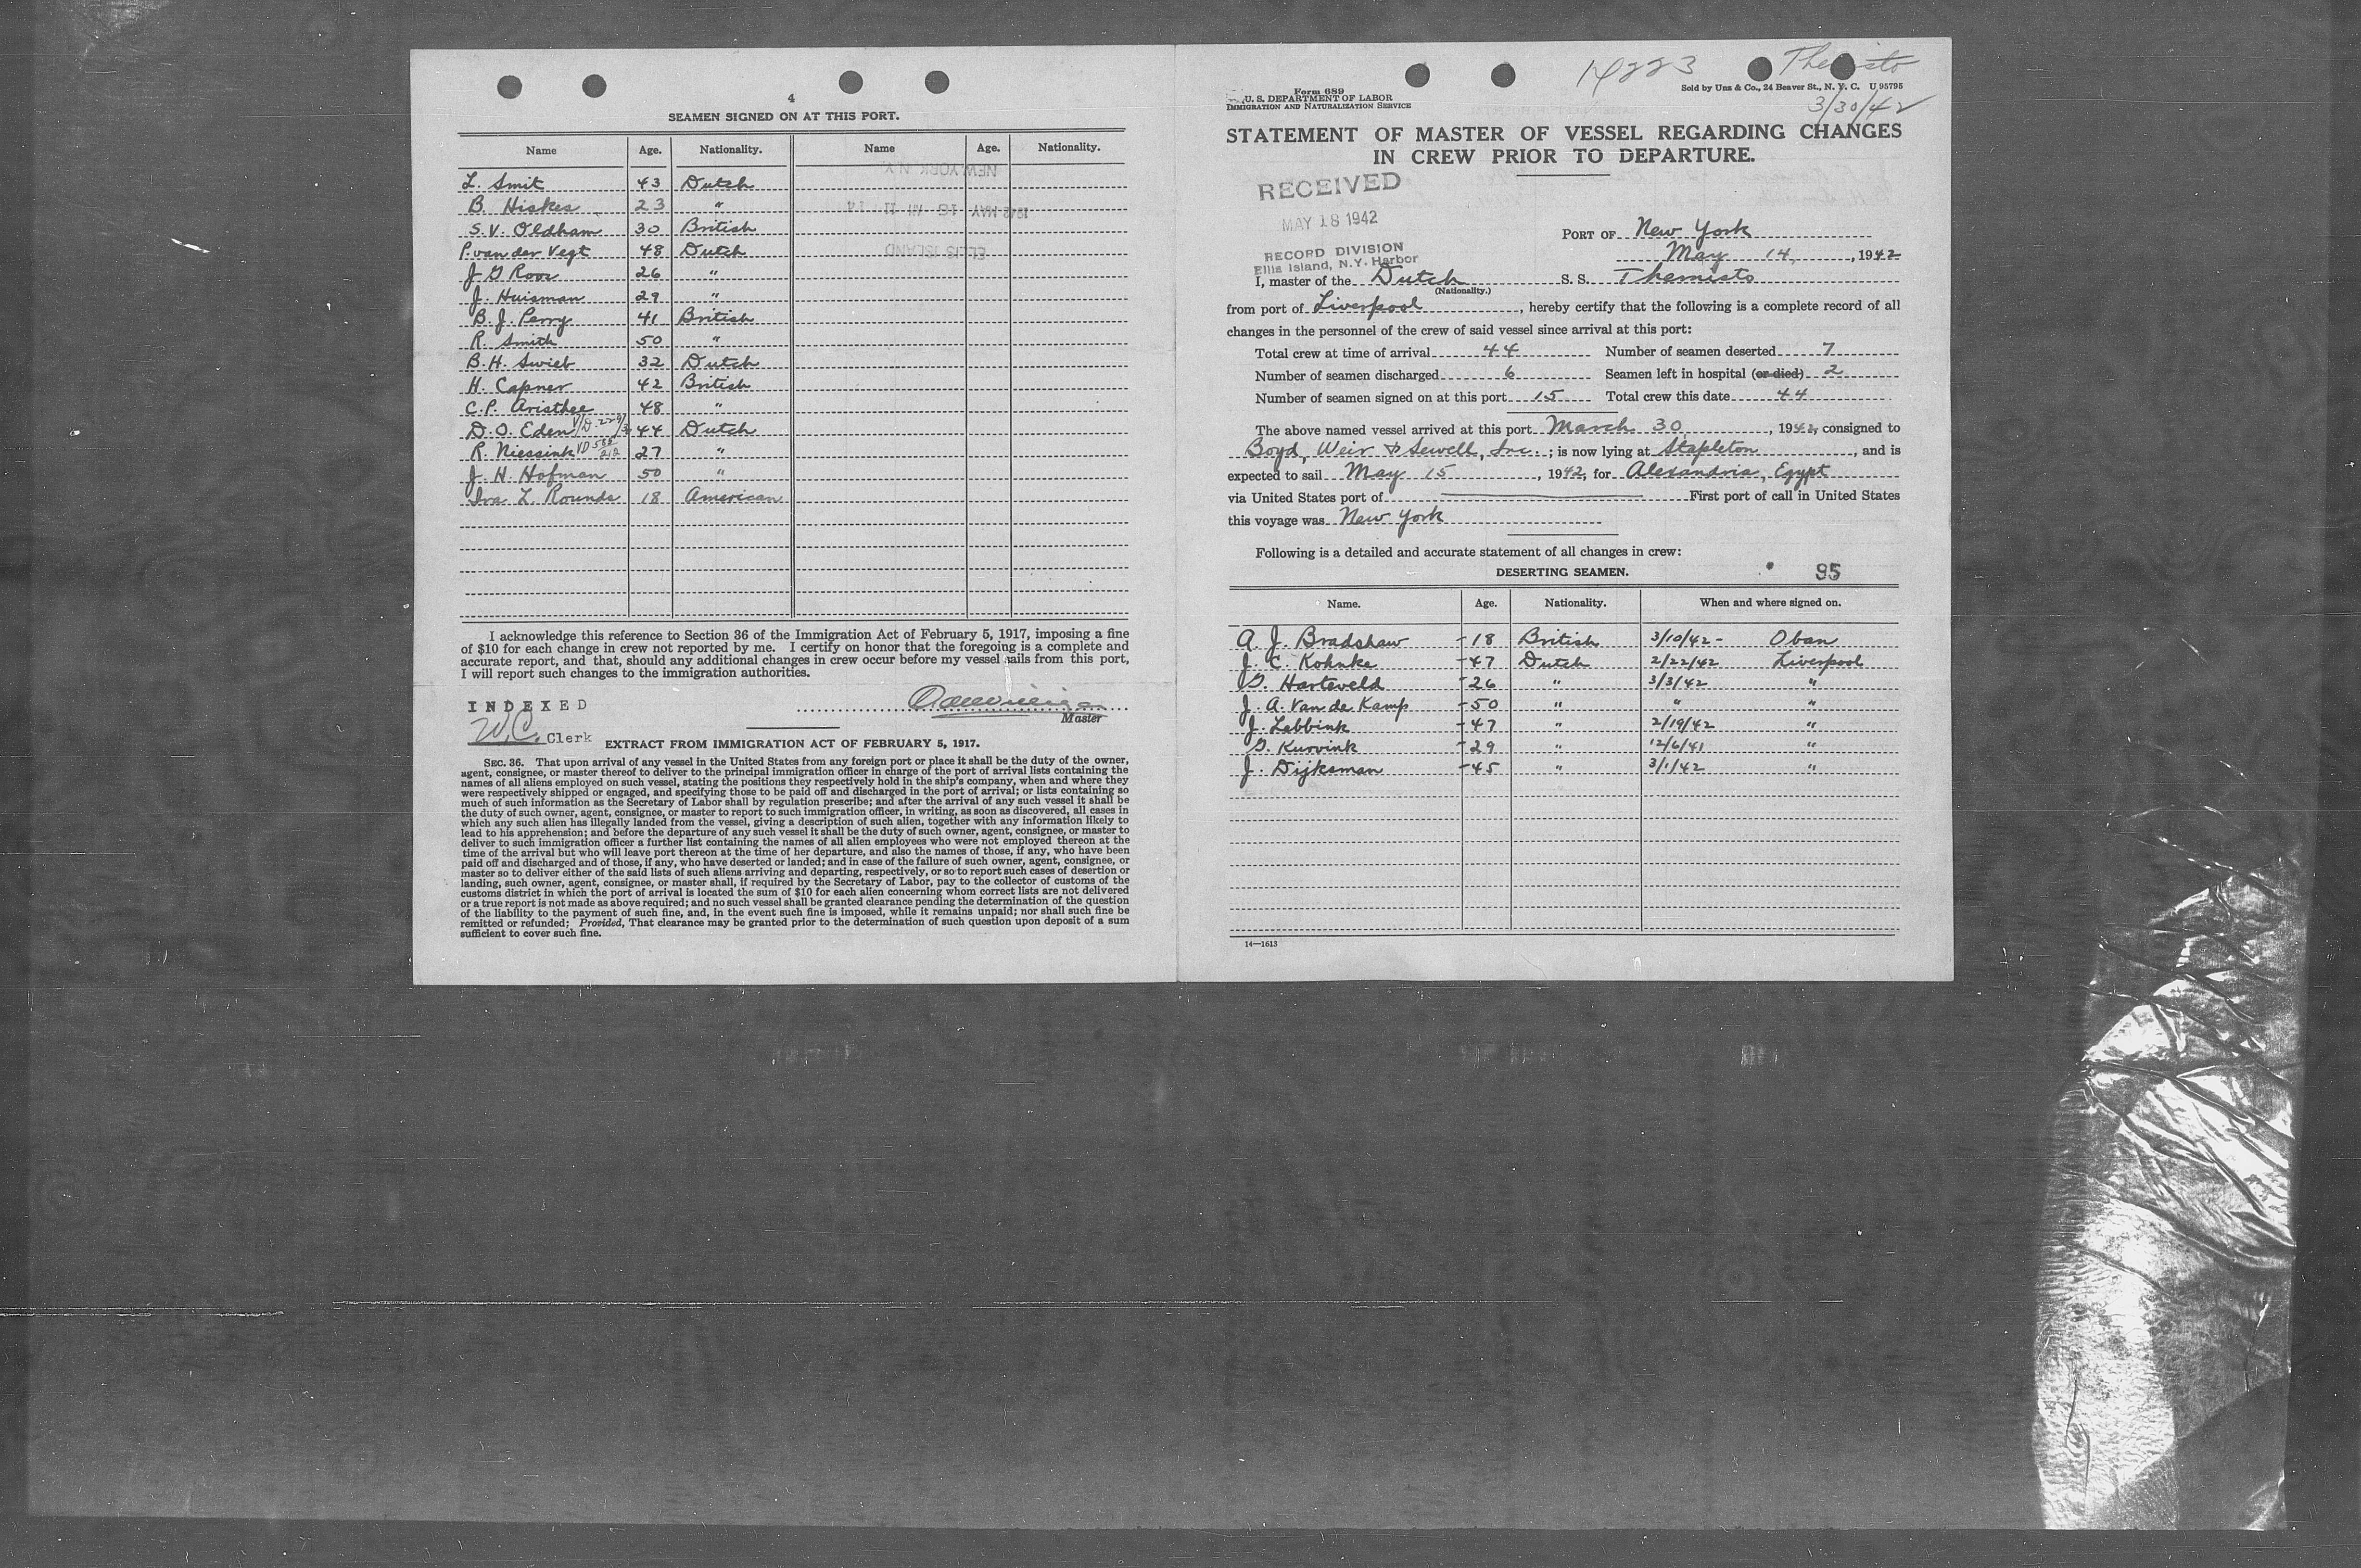 4
SEAMEN SIGNED ON AT THIS PORT.
Name Age. Nationality. Name Age. Nationality.
L. Smit 43 Dutch
B. Hiskes 23 "
S.V. Oldham 30 British
P. van der Vegt 48 Dutch
J G Roos 26 "
J. Huisman 29 "
B. J. Perry 41 British
R. Smith 50 "
B.H. Swieb 32 Dutch
H. Capner 42 British
C.P. Aristhee 48 "
D.O. Eden 44 Dutch
R. Niessink 27 "
J. H. Hofman 50 "
Ira L. Rounds 18 American
NEW YORK N.Y.
1942 MAY 16 AM 11 14
ELLIS ISLAND
I acknowledge this reference to Section 36 of the Immigration Act of February 5, 1917, imposing a fine
of $10 for each change in crew not reported by me. I certify on honor that the foregoing is a complete and
accurate report, and that, should any additional changes in crew occur before my vessel sails from this port,
I will report such changes to the immigration authorities.
INDEXED
W.C. Clerk
Master
EXTRACT FROM IMMIGRATION ACT OF FEBRUARY 5, 1917.
SEC. 36. That upon arrival of any vessel in the United States from any foreign port or place it shall be the duty of the owner,
agent, consignee, or master thereof to deliver to the principal immigration officer in charge of the port of arrival lists containing the
names of all aliens employed on such vessel, stating the positions they respectively hold in the ship's company, when and where they
were respectively shipped or engaged, and specifying those to be paid off and discharged in the port of arrival; or lists containing so
much of such information as the Secretary of Labor shall by regulation prescribe; and after the arrival of any such vessel it shall be
the duty of such owner, agent, consignee, or master to report to such immigration officer, in writing, as soon as discovered, all cases in
which any such alien has illegally landed from the vessel, giving a description of such alien, together with any information likely to
lead to his apprehension; and before the departure of any such vessel it shall be the duty of such owner, agent, consignee, or master to
deliver to such immigration officer a further list containing the names of all alien employees who were not employed thereon at the
time of the arrival but who will leave port thereon at the time of her departure, and also the names of those, if any, who have been
paid off and discharged and of those, if any, who have deserted or landed; and in case of the failure of such owner, agent, consignee, or
master so to deliver either of the said lists of such aliens arriving and departing, respectively, or so to report such cases of desertion or
landing, such owner, agent, consignee, or master shall, if required by the Secretary of Labor, pay to the collector of customs of the
customs district in which the port of arrival is located the sum of $10 for each alien concerning whom correct lists are not delivered
or a true report is not made as above required; and no such vessel shall be granted clearance pending the determination of the question
of the liability to the payment of such fine, and, in the event such fine is imposed, while it remains unpaid; nor shall such fine be
remitted or refunded; Provided, That clearance may be granted prior to the determination of such question upon deposit of a sum
sufficient to cover such fine.
14223 Themisto
Form 689
U. S. DEPARTMENT OF LABOR
IMMIGRATION AND NATURALIZATION SERVICE
Sold by Unz & Co., 24 Beaver St., N. Y. C. U 95795
3/30/42
STATEMENT OF MASTER OF VESSEL REGARDING CHANGES
IN CREW PRIOR TO DEPARTURE.
RECEIVED
MAY 18 1942
RECORD DIVISION
Ellis Island, N.Y. Harbor
PORT OF New York
May 14, , 1942
I, master of the Dutch S. S. Themisto
(Nationality.)
from port of Liverpool , hereby certify that the following is a complete record of all
changes in the personnel of the crew of said vessel since arrival at this port:
Total crew at time of arrival 44 Number of seamen deserted 7
Number of seamen discharged 6 Seamen left in hospital (or died) 2
Number of seamen signed on at this port 15 Total crew this date 44
The above named vessel arrived at this port March 30 , 1942, consigned to
Boyd, Weir & Sewell, Inc. ; is now lying at Stapleton , and is
expected to sail May 15 , 1942, for Alexandria, Egypt
via United States port of First port of call in United States
this voyage was New York
Following is a detailed and accurate statement of all changes in crew:
DESERTING SEAMEN.
95
Name. Age. Nationality. When and where signed on.
A. J. Bradshaw -18 British 3/10/42 - Oban
J. C. Kohnke -47 Dutch 2/22/42 Liverpool
G. Harteveld -26 " 3/3/42 "
J. A. Van de Kamp -50 " " "
J. Lebbink -47 " 2/19/42 "
G. Kurvink -29 " 12/6/41 "
J. Dijksman -45 " 3/1/42 "
14—1613